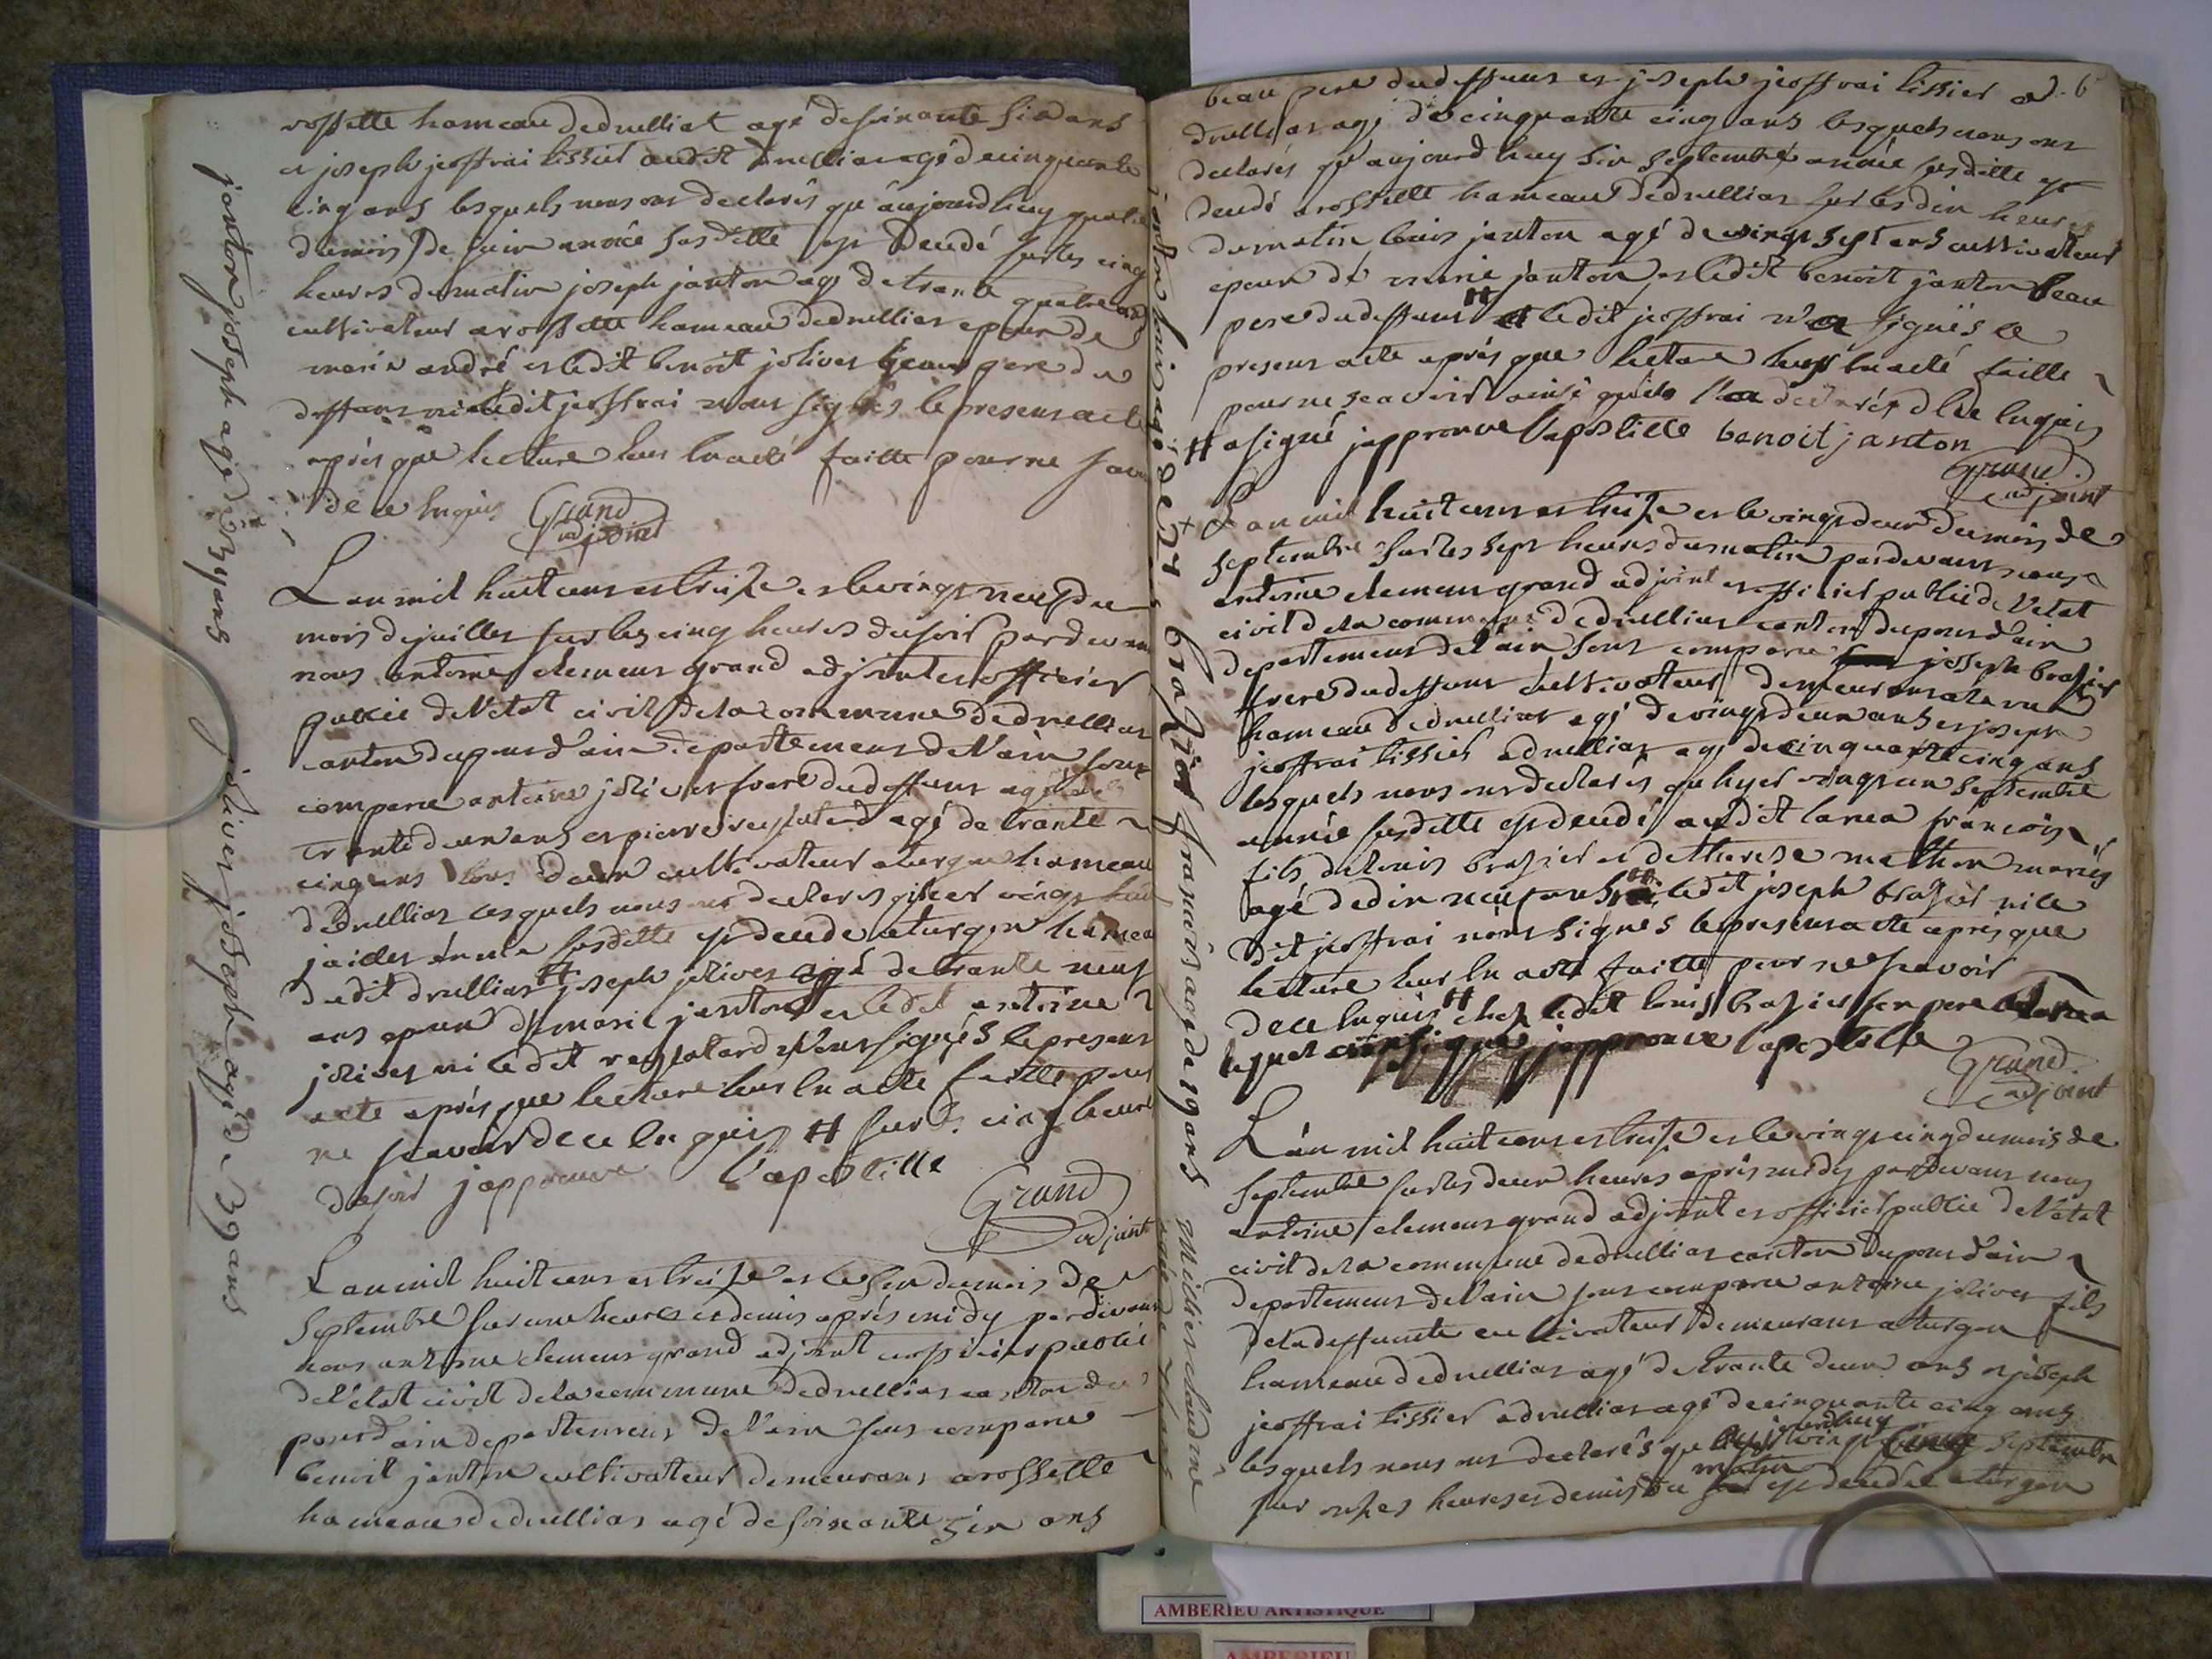 rossette hameau dedruilliat agé desoixante six ans
et joseph jeoffrai tissier audit druilliat agé decinquante
cinq ans lesquels nous ont declarés qu'aujourdhuy quatre
dumois de juin année susditte est decedé sur les cinq
heures dumatin joseph janton agé detrante quatre ans
cultivateur a rossette hameau dedruilliat epoux de
marie andré et ledit benoit jolivet beau pere du
deffunt ni ledit jeoffrai n'ont signés le present acte
aprés que lecture leur lu acté faitte pour ne savoir
de ce enquis Grand
adjoint
janton joseph agé de 34 ans
L'an mil huit cent et treize et le vingt neuf du
mois de juillet sur les cinq heures dusoir pardevant
nous antoine clement grand adjoint et officier
public de l'etat civil de la commune dedruilliat
canton dupont d'ain departement de l'ain sont
comparu antoine jolivet frere du deffunt agé de
trante deux ans et pierre reynotard agé de trante
cinq ans tous deux cultivateur a turgon hameau
dedruilliat lesquels nous ont declarés qu'hier vingt huit
juillet année susditte est decedé a turgon hameau
dudit druilliat # joseph jolivet agé de trante neuf
ans epoux de marie janton et ledit antoine
jolivet ni ledit reynotard n'ont signés le present
acte aprés que lecture leur lu acté faitte pour
ne scavoir de ce enquis # sur les cinq heures
du soir japprouve l'apostille
Grand
adjoint
jolivet joseph agé de 39 ans
L'an mil huit cent et treize et le six du mois de
septembre sur une heure et demis aprés midy pardevant
nous antoine clement grand adjoint et officier public
de l'etat civil de la commune dedruilliat canton du
pont d'ain departement de l'ain sont comparu
benoit janton cultivateur demeurant a rossette
hameau dedruilliat agé desoixante six ans
6
beau pere dudeffunt et joseph jeoffrai tissier a
druilliat agé de cinquante cinq ans lesquels nous ont
declarés qu'aujourdhuy six septembre année susditte est
decedé a rossette hameau dedruilliat sur les dix heures
dumatin louis janton agé de vingt sept ans cultivateur
epoux de marie janton et ledit benoit janton beau
pere dudeffunt # ledit jeoffrai n'a signés le
present acte aprés que lecture leur lu acté faitte
pour ne scavoir ainsi quils l'a declarés de ce enquis
# a signé japprouve l'apostille benoit janton
Grand
adjoint
janton louis agé de 27 ans
L'an mil huit cent et treize et le vingt deux du mois de
septembre sur les sept heures dumatin pardevant nous
antoine clement grand adjoint et officier public de l'etat
civil de la commune dedruilliat canton dupont d'ain
departement de l'ain sont comparu joseph brazier
frere dudeffunt cultivateur demeurant a larua
hameau dedruilliat agé de vingt deux ans et joseph
jeoffrai tissier a druilliat agé de cinquante cinq ans
lesquels nous ont declarés qu'hyer vingt un septembre
année susditte est decedé audit larua françois
fils de louis brazier et de therese mathon mariés
agé de dix neuf ans # ledit joseph brazier ni le
dit jeoffrai n'ont signés le present acte aprés que
lecture leur lu acté faitte pour ne scavoir
de ce enquis # chez ledit louis brazier son pere a larua
japprouve l'apostille
Grand
adjoint
brazier françois agé de 19 ans
L'an mil huit cent et treize et le vingt cinq du mois de
septembre sur les deux heures aprés midy pardevant nous
antoine clement grand adjoint et officier public de l'etat
civil de la commune dedruilliat canton dupont d'ain
departement de l'ain sont comparu antoine jolivet fils
de la deffunte cultivateur demeurant a turgon
hameau dedruilliat agé de trante deux ans et joseph
jeoffrai tissier a druilliat agé de cinquante cinq ans
lesquels nous ont declarés qu'aujourdhuy vingt cinq septembre
sur onzes heures et demis du matin est decedée a turgon
millier claudine
AMBERIEU ARTISTIQUE
AMBERIEU